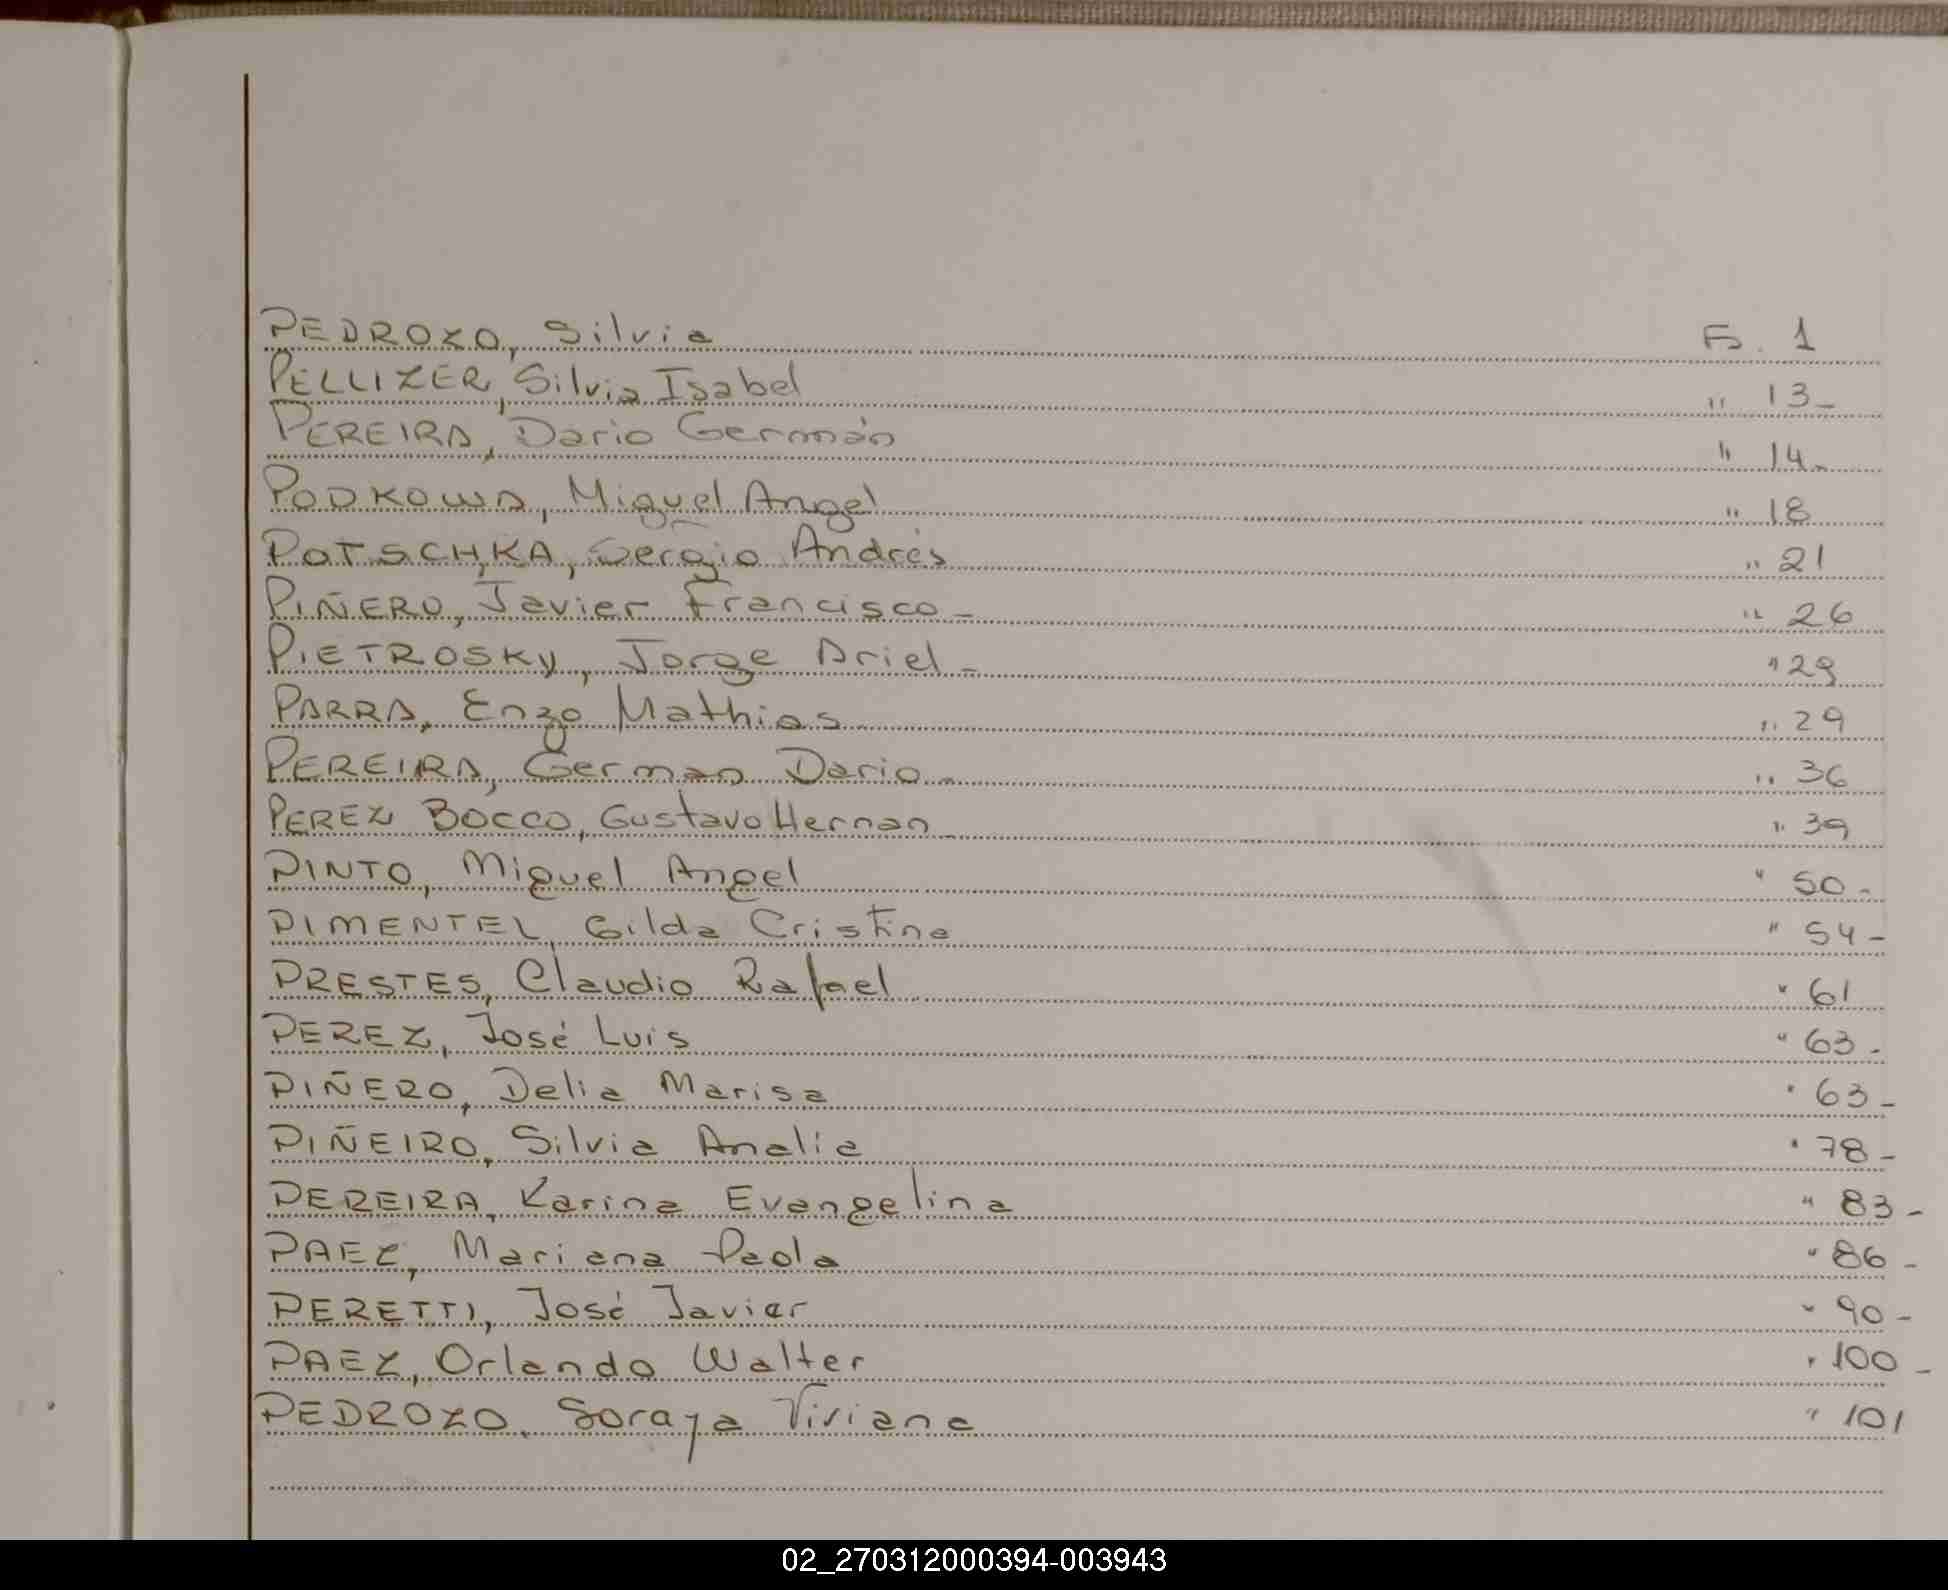 PEDROZO, Silvia Fs. 1
PELLIZER, Silvia Isabel " 13-
PEREIRA, Dario Germán " 14-
PODKOWA, Miguel Angel " 18
POTSCHKA, Sergio Andrés " 21
PIÑERO, Javier Francisco- " 26
PIETROSKY, Jorge Ariel- " 29
PARRA, Enzo Mathias " 29
PEREIRA, German Dario- " 36
PEREZ BOCCO, Gustavo Hernan " 39
PINTO, Miguel Angel " 50-
PIMENTEL, Gilda Cristina " 54-
PRESTES, Claudio Rafael " 61
PEREZ, José Luis " 63-
PIÑERO, Delia Marisa " 63-
PIÑEIRO, Silvia Analia " 78-
PEREIRA, Karina Evangelina " 83-
PAEZ, Mariana Paola " 86-
PERETTI, José Javier " 90-
PAEZ, Orlando Walter " 100-
PEDROZO, Soraya Viviana " 101
02_270312000394-003943